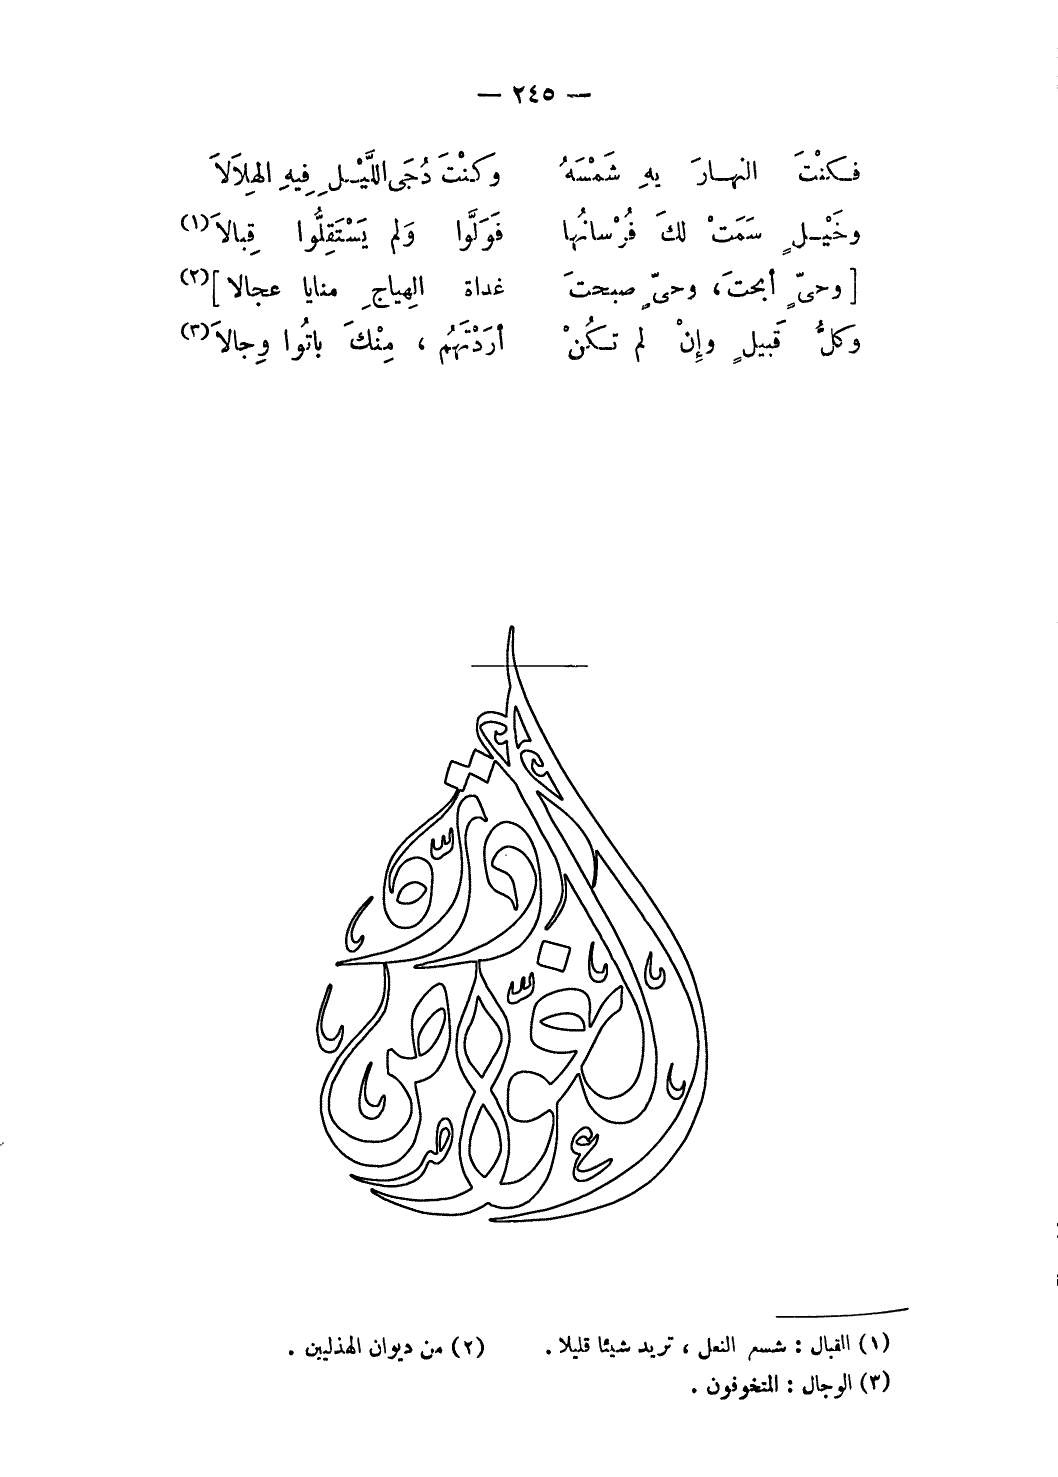 — ٢٤٥ —
فكنْتَ النهارَ بهِ شَمْسَهُ وكنْتَ دُجَى اللَّيْلِ فِيهِ الهِلَالَا
وخَيْلٍ سَمَتْ لكَ فُرْسانُها فَوَلَّوا وَلم يَسْتَقِلُّوا قِبالاَ (١)
[وحىٍّ أبحتَ، وحىٍّ صبحتَ غداة الهِياجِ منايا عجالا] (٢)
وكلُّ قَبيلٍ وإِنْ لم تكُنْ أرَدْتَهُم، مِنْكَ باتُوا وِجالاَ (٣)
(١) القبال : شسع النعل ، تريد شيئا قليلا . (٢) من ديوان الهذليين .
(٣) الوجال : المتخوفون .